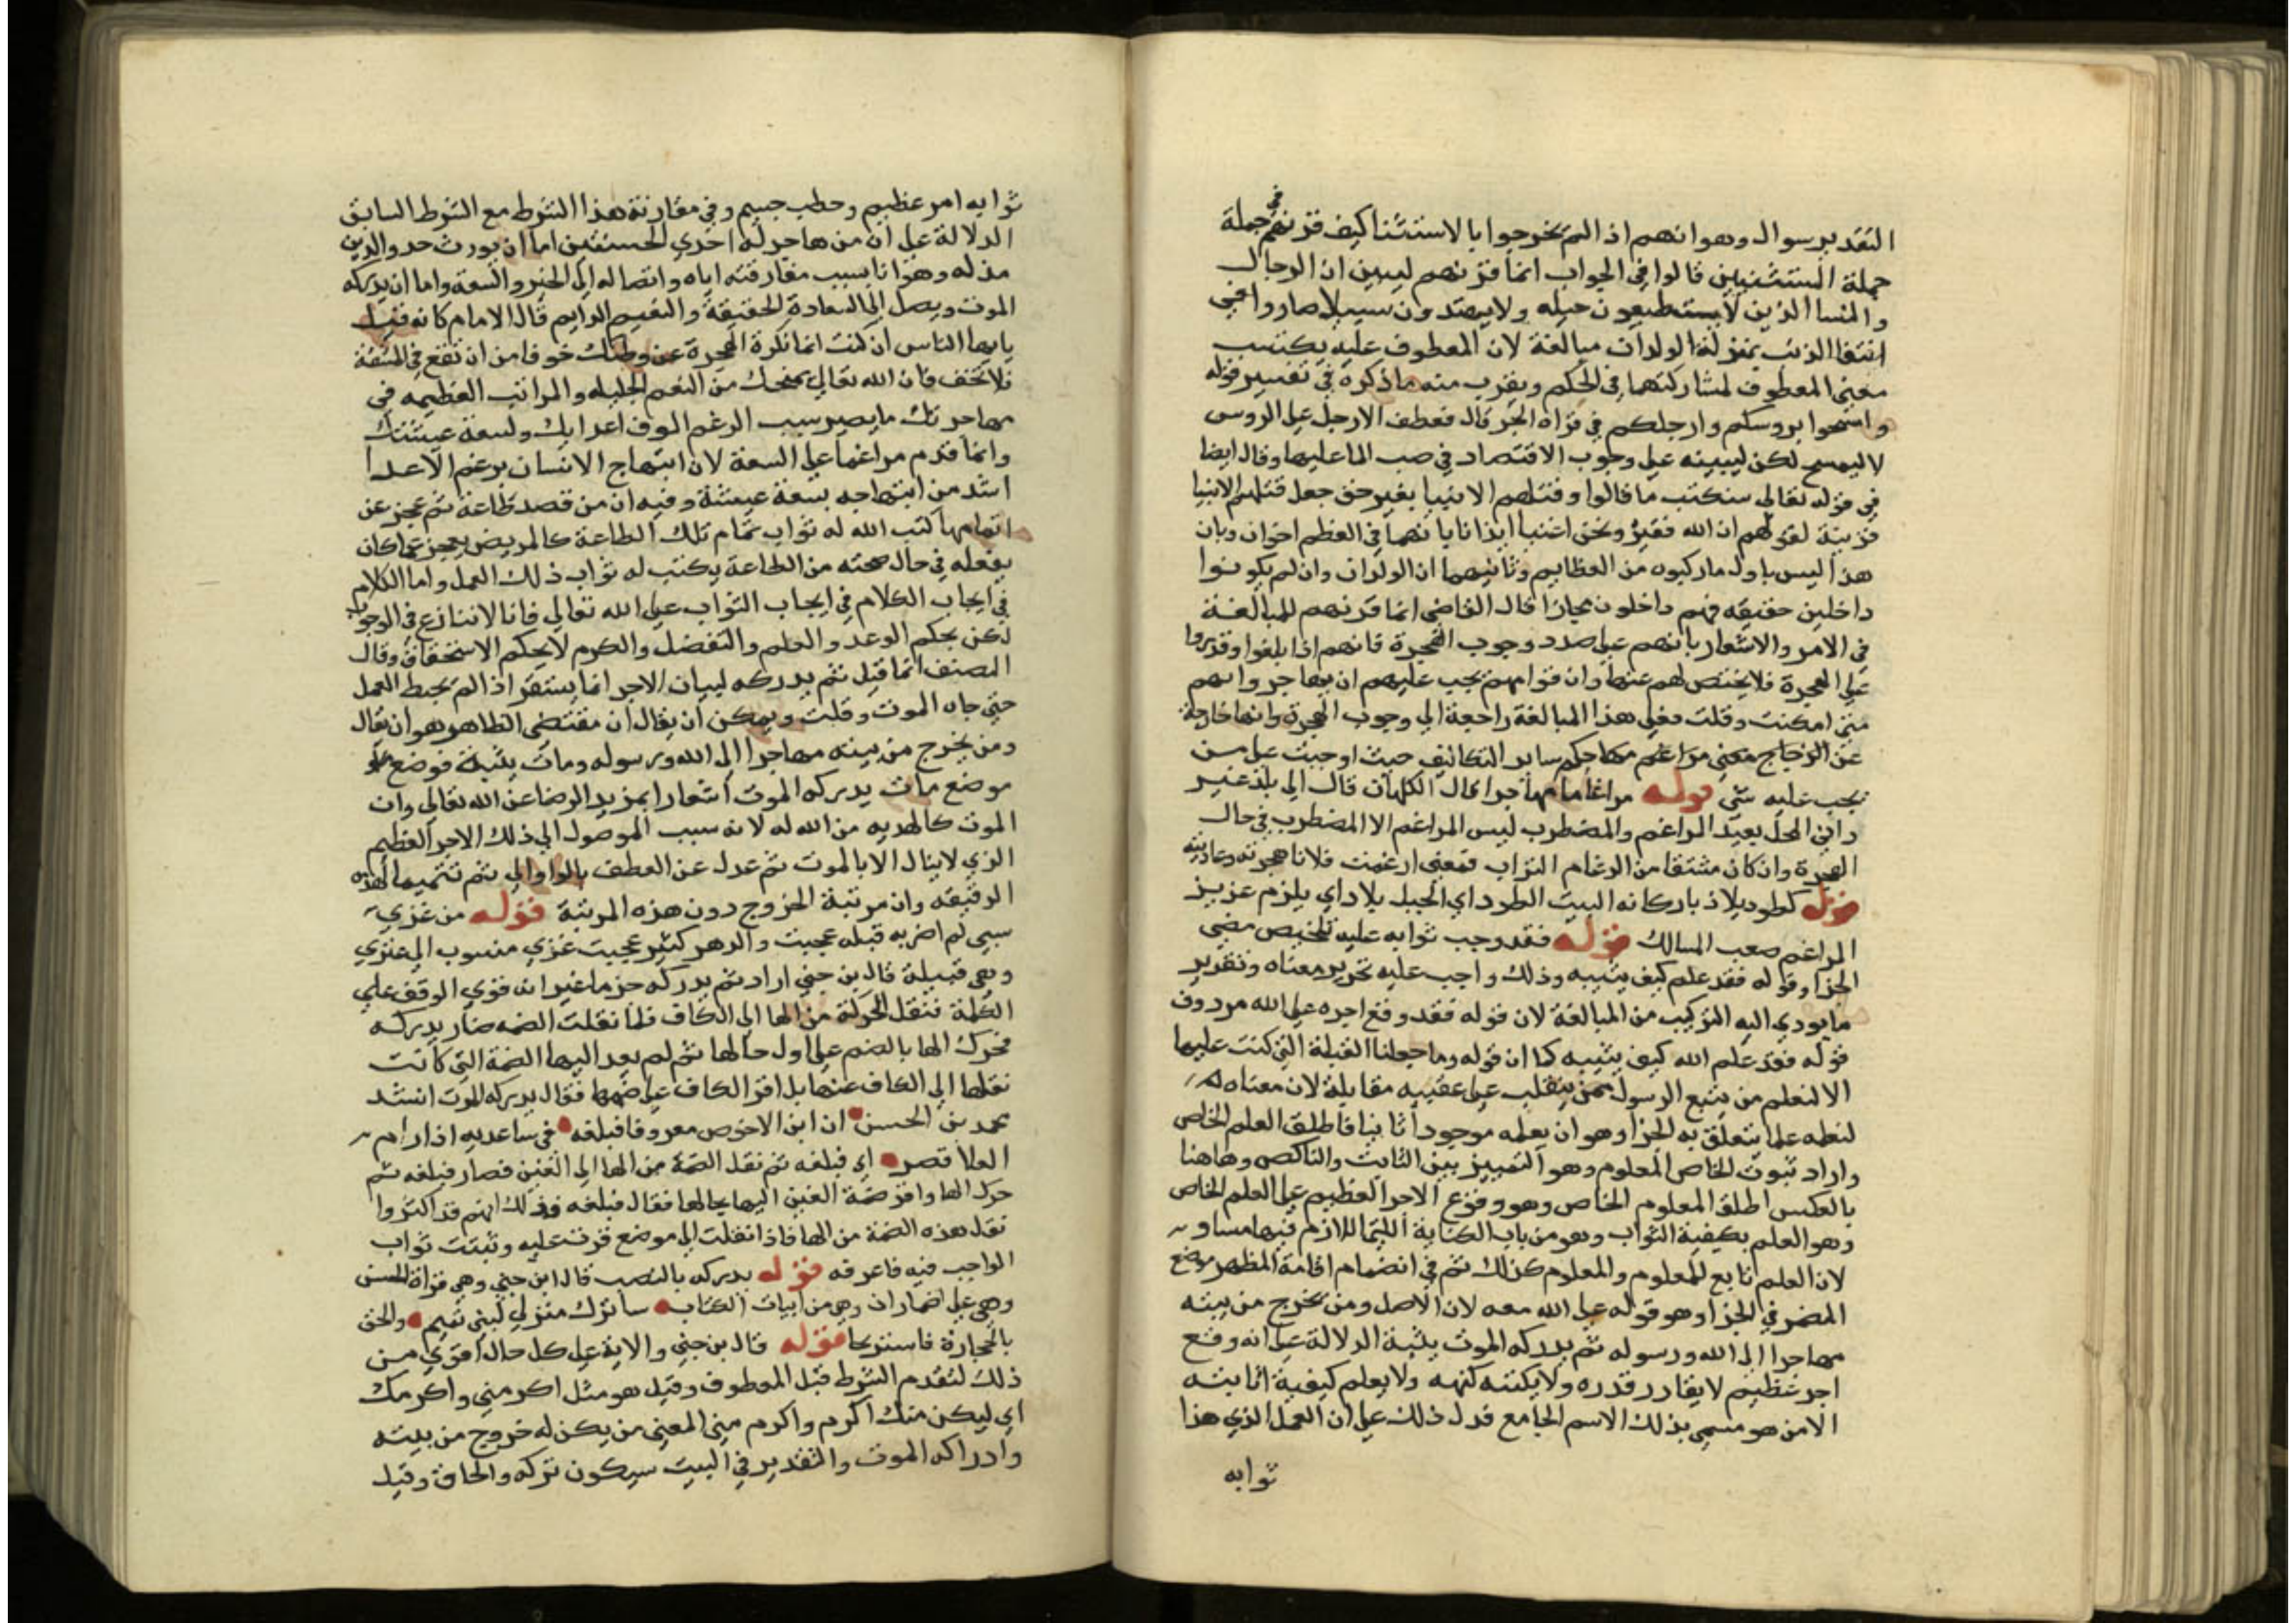 التقدير سوال وهو انهم اذا لم يخرجوا بالاستثنا كيف قرنهم في جملة
جملة المستثنيين قالوا في الجواب انما قرنهم ليبين ان الرجال
والنسا الذين لا يستطيعون حيله ولا يهتدون سبيلا صاروا في
انتفا الذنب بمنزلة الولدان مبالغة لان المعطوف عليه يكتسب
معني المعطوف لمشاركتهما في الحكم ويقرب منه ما ذكره في تفسير قوله
وامسحوا بروسكم وارجلكم في قراه الجر قال فعطف الارجل علي الروس
لا ليمسح لكن لينبه علي وجوب الاقتصاد في صب الما عليها وقال ايضا
في قوله تعالي سنكتب ما قالوا وقتلهم الانبيا بغير حق جعل قتلهم الانبيا
قرينة لقولهم ان الله فقير ونحن اغنيا ايذانا بانهما في العظم اخوان وبان
هذا ليس باول ما ركبوه من العظايم وثانيهما ان الولدان وان لم يكونوا
داخلين حقيقه فهم داخلون مجازا قال القاضي انما قرنهم للمبالغة
في الامر والاشعار بانهم علي صدد وجوب الهجرة فانهم اذا بلغوا وقدروا
علي الهجرة فلا محيص لهم عنها وان قوامهم يجب عليهم ان يهاجروا بهم
متي امكنت وقلت فعلي هذا المبالغة راجعة الي وجوب الهجرة وانها خارجة
عن حكم ساير التكاليف حيث اوجبت علي من
يجب عليه شي قوله مراغما مهاجرا قال الي بلد غير
داني المحل بعيد المراغم والمضطرب ليس المراغم الا المضطرب في حال
الهجرة وان كان مشتقا من الرغام التراب فمعني ارغمت فلانا هجرته وعاديته
قوله كطود يلاذ باركانه البيت الطود اي الجبل يلاد اي يلزم عزيز
المراغم صعب المسالك قوله فقد وجب ثوابه عليه تلخيص مضي
الجزا وقوله فقد علم كيف يثيبه وذلك واجب عليه تحرير معناه وتقرير
ما يودي اليه التركيب من المبالغة لان قوله فقد وقع اجره علي الله مردوف
قوله فقد علم الله كيف يثيبه كما ان قوله وما جعلنا القبلة التي كنت عليها
الا لنعلم من يتبع الرسول ممن ينقلب علي عقبيه مقابلة لان معناه
لنعلمه علما يتعلق به الجزا وهو ان يعلمه موجودا ثابتا فاطلق العلم الخاص
واراد ثبوت الخاص المعلوم وهو التمييز بين الثابت والناكص وهاهنا
بالعكس اطلق المعلوم الخاص وهو وقوع الاجر العظيم علي العلم الخاص
وهو العلم بكيفية الثواب وهو من باب الكناية اللازم فيها مساو
لان العلم تابع للمعلوم والمعلوم كذلك ثم في انضمام اقامة المظهر موضع
المضمر في الجزا وهو قوله علي الله معه لان الاصل ومن يخرج من بيته
مهاجرا الي الله ورسوله ثم يدركه الموت يثيبه الدلالة علي انه وقع
اجر عظيم لا يقادر قدره ولا يكتنه كنهه ولا يعلم كيفية اثابته
الا من هو مسمي بذلك الاسم الجامع فدل ذلك علي ان العمل الذي هذا
ثوابه
ثوابه امر عظيم وخطب جسيم وفي مقارنة هذا الشرط مع الشرط السابق
الدلالة علي ان من هاجر له احدي الحسنيين اما ان يورث
مذله وهوانا بسبب مفارقته اياه واتصاله الي الخير والسعة واما ان يدركه
الموت ويصل الي السعادة الحقيقة والنعيم الدايم قال الامام كانه قيل
يايها الناس ان كنت انما تكره الهجرة عن وطنك خوفا من ان تقع في المشقة
فلا تخف فان الله تعالي يمنحك من النعم الجليله والمراتب العظيمه في
مهاجرتك ما يصير سبب الرغم انوف اعدايك ولسعة عيشتك
وانما قدم مراغما علي السعة لان ابتهاج الانسان برغم الاعدا
اشد من ابتهاجه بسعة عيشة وفيه ان من قصد طاعة ثم عجز عن
اتمامها كتب الله له ثواب تمام تلك الطاعة كالمريض يعجز عما كان
يفعله في حال صحته من الطاعة يكتب له ثواب ذلك العمل واما الكلام
في ايجاب الكلام في ايجاب الثواب علي الله تعالي فانا لا ننازع في الوجوب
لكن بحكم الوعد والعلم والتفضل والكرم لا بحكم الاستحقاق وقال
المصنف انما قيل ثم يدركه لبيان الاجر انما يستقر اذا لم يحبط العمل
حتي جاه الموت وقلت ويمكن ان يقال ان مقتضي الظاهر هو ان يقال
ومن يخرج من بيته مهاجرا الي الله ورسوله ومات يثيبه فوضع
موضع مات يدركه الموت اشعارا بمزيد الرضا عن الله تعالي وان
الموت كالهديه من الله له لانه سبب الموصول الي ذلك الاجر العظيم
الذي لا ينال الا بالموت ثم عدل عن العطف بالواو الي ثم تتميما لهذه
الدقيقه وان مرتبة الخروج دون هذه المرتبة قوله من عنزي
سبي لم اضربه قبله عجبت والدهر كثير عجبت عنزي منسوب الي عنزي
وهي قبيلة قال بن جني اراد ثم يدركه جزما غير انه نوي الوقف علي
الكلمة فنقل الحركة من الها الي الكاف فلما نقلت الضمه صار يدركه
فحرك الها بالضم علي اول حالها ثم لم يعد اليها الضمة التي كانت
نقلها الي الكاف عنها بل اقر الكاف علي ضمها فقال يدركه الموت انشد
محمد بن الحسن ان ابن الاحوص معروفا فبلغه في ساعديه اذا رام
العلا قصر اي فبلغه ثم نقل الضمة من الها الي الغين فصار فبلغه ثم
حرك الها واقر ضمة الغين اليها بحالها فقال فبلغه وذلك انهم قد اكثروا
نقل هذه الضمة من الها فاذا نقلت الي موضع قرت عليه وثبتت ثواب
الواجب فيه فاعرفه قوله يدركه بالنصب قال ابن جني وهي قراة الحسن
وهي علي اضمار ان وهي من ابيات الكتاب ساترك منزلي لبني تميم والحق
بالحجازة فاستريحا قوله قال بن جني والاية علي كل حال اقوي من
ذلك لتقدم الشرط قبل المعطوف وقيل هو مثل اكرمني واكرمك
اي ليكن منك اكرم واكرم مني المعني من يكن له خروج من بيته
وادراكه الموت والتقدير في البيت سيكون تركه والحاق وقيل